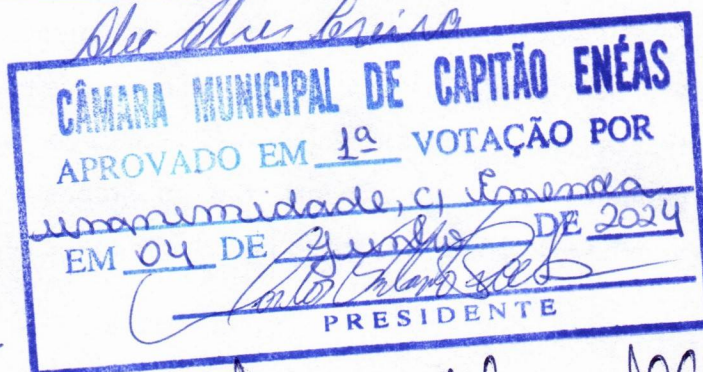 Pereira
CÂMARA MUNICIPAL DE CAPITÃO ENÉAS
APROVADO EM 1ª VOTAÇÃO POR
unanimidade, c/ Emenda
EM 04 DE Junho DE 2024
PRESIDENTE